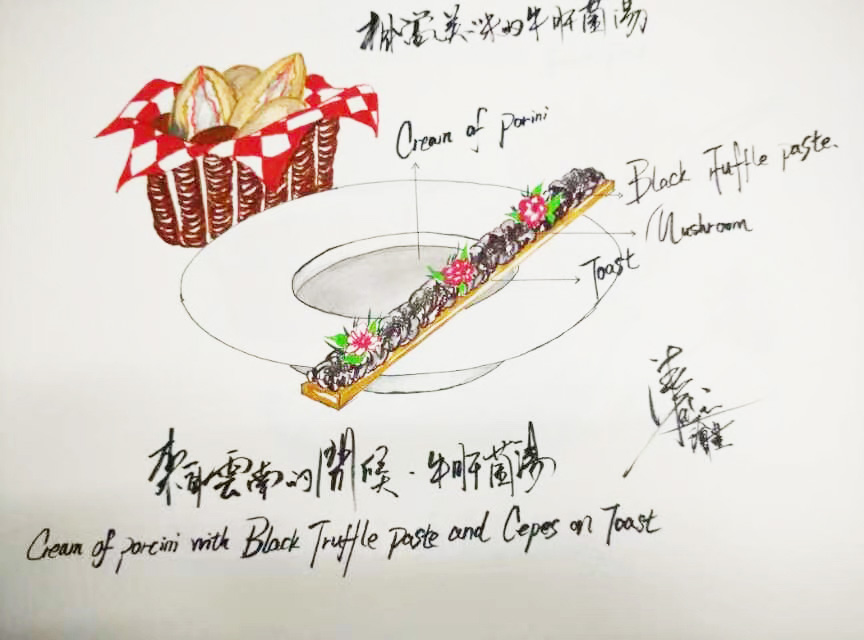 美味的牛肝菌湯
Cream of porini
Black Truffle paste.
Mushroom
Toast
來自雲南的問候·牛肝菌湯
Cream of porcini with Black Truffle paste and Cepes on Toast